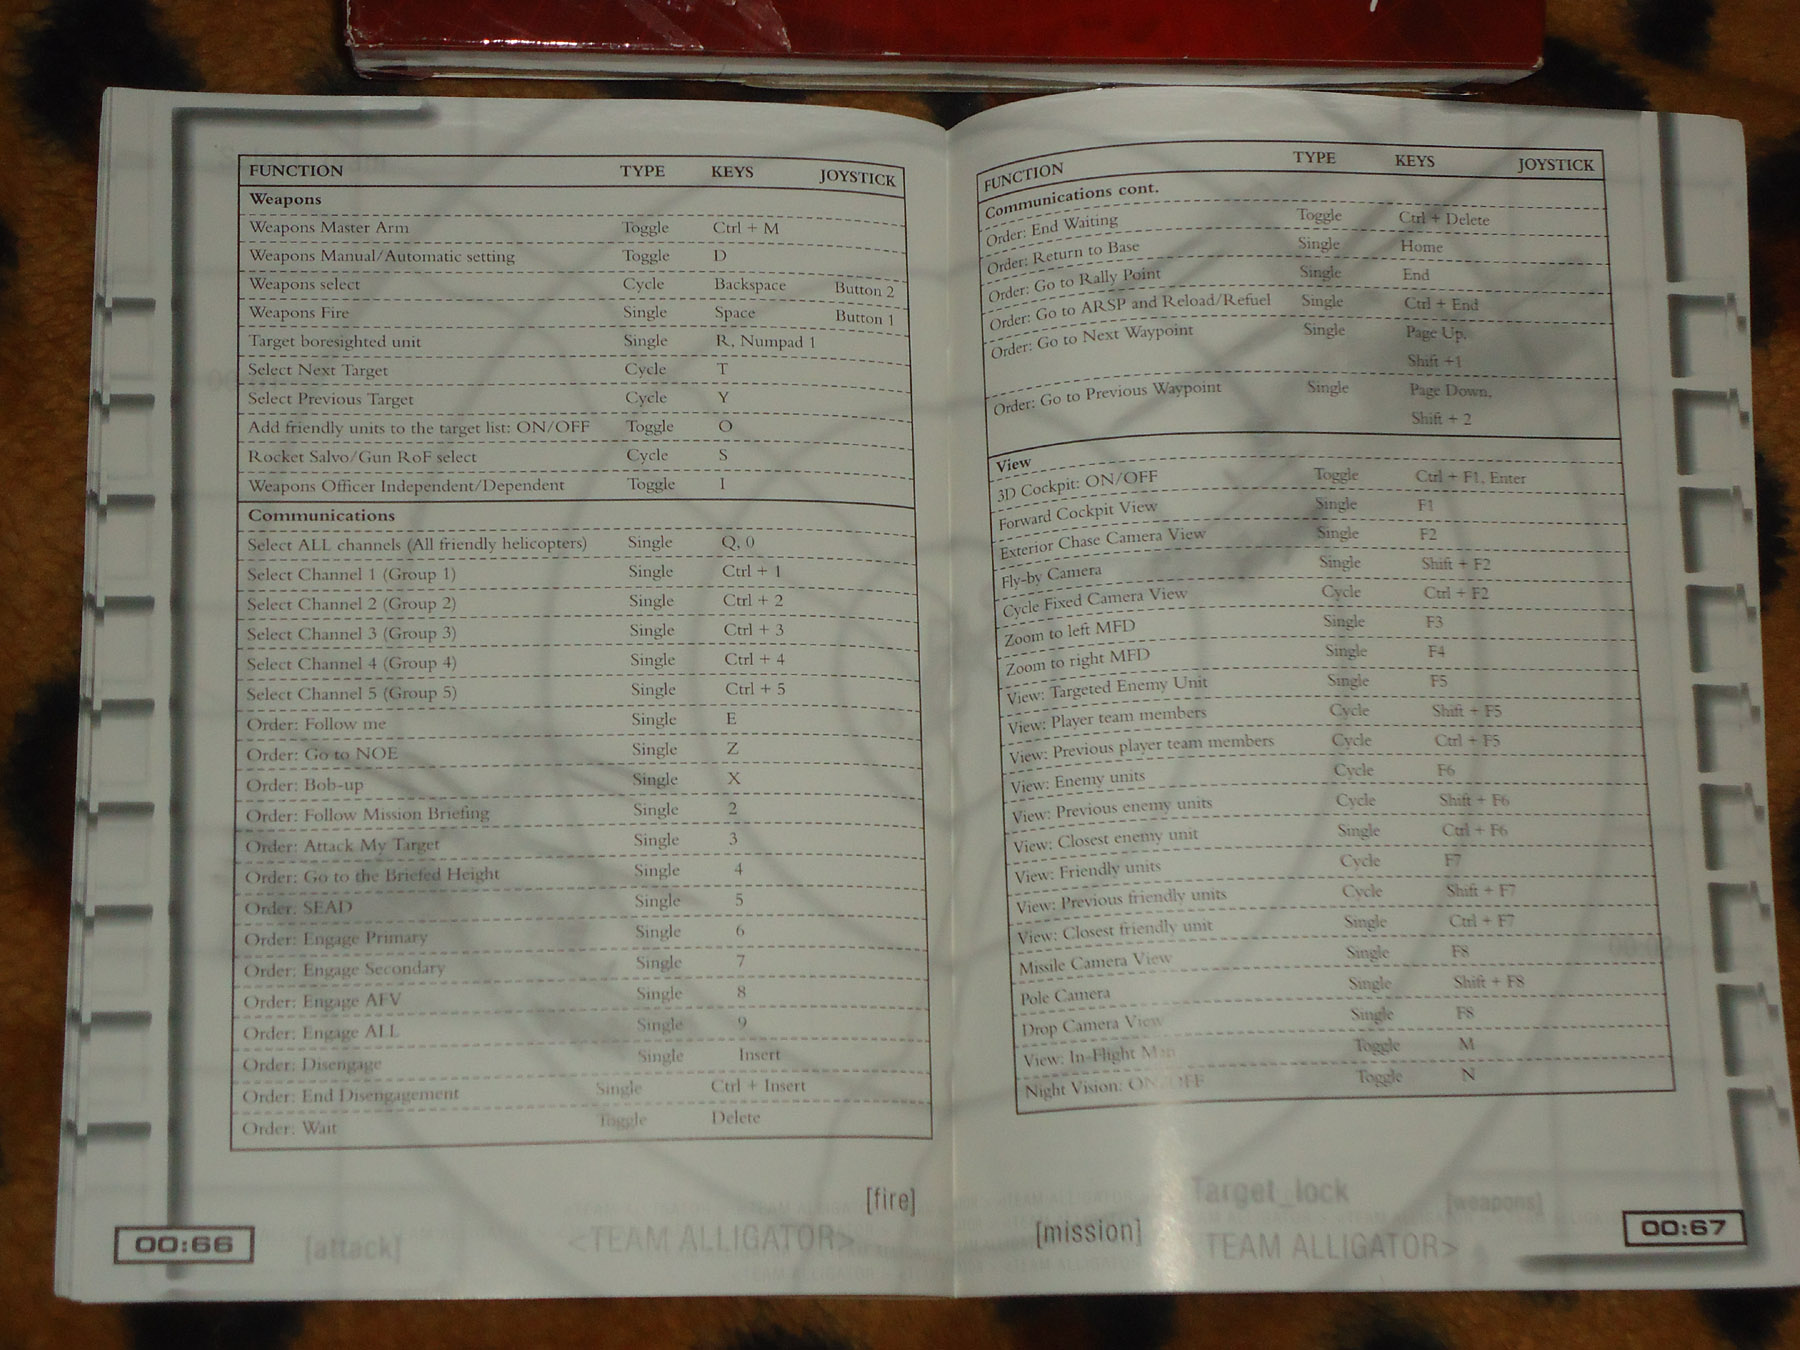 FUNCTION TYPE KEYS JOYSTICK
Weapons
Weapons Master Arm Toggle Ctrl + M
Weapons Manual/Automatic setting Toggle D
Weapons select Cycle Backspace Button 2
Weapons Fire Single Space Button 1
Target boresighted unit Single R, Numpad 1
Select Next Target Cycle T
Select Previous Target Cycle Y
Add friendly units to the target list: ON/OFF Toggle O
Rocket Salvo/Gun RoF select Cycle S
Weapons Officer Independent/Dependent Toggle I
Communications
Select ALL channels (All friendly helicopters) Single Q, 0
Select Channel 1 (Group 1) Single Ctrl + 1
Select Channel 2 (Group 2) Single Ctrl + 2
Select Channel 3 (Group 3) Single Ctrl + 3
Select Channel 4 (Group 4) Single Ctrl + 4
Select Channel 5 (Group 5) Single Ctrl + 5
Order: Follow me Single E
Order: Go to NOE Single Z
Order: Bob-up Single X
Order: Follow Mission Briefing Single 2
Order: Attack My Target Single 3
Order: Go to the Briefed Height Single 4
Order: SEAD Single 5
Order: Engage Primary Single 6
Order: Engage Secondary Single 7
Order: Engage AFV Single 8
Order: Engage ALL Single 9
Order: Disengage Single Insert
Order: End Disengagement Single Ctrl + Insert
Order: Wait Toggle Delete
[fire]
<TEAM ALLIGATOR>
00:66 [attack]
FUNCTION TYPE KEYS JOYSTICK
Communications cont.
Order: End Waiting Toggle Ctrl + Delete
Order: Return to Base Single Home
Order: Go to Rally Point Single End
Order: Go to ARSP and Reload/Refuel Single Ctrl + End
Order: Go to Next Waypoint Single Page Up,
Shift +1
Order: Go to Previous Waypoint Single Page Down,
Shift + 2
View
3D Cockpit: ON/OFF Toggle Ctrl + F1, Enter
Forward Cockpit View Single F1
Exterior Chase Camera View Single F2
Fly-by Camera Single Shift + F2
Cycle Fixed Camera View Cycle Ctrl + F2
Zoom to left MFD Single F3
Zoom to right MFD Single F4
View: Targeted Enemy Unit Single F5
View: Player team members Cycle Shift + F5
View: Previous player team members Cycle Ctrl + F5
View: Enemy units Cycle F6
View: Previous enemy units Cycle Shift + F6
View: Closest enemy unit Single Ctrl + F6
View: Friendly units Cycle F7
View: Previous friendly units Cycle Shift + F7
View: Closest friendly unit Single Ctrl + F7
Missile Camera View Single F8
Pole Camera Single Shift + F8
Drop Camera View Single F8
View: In-Flight Map Toggle M
Night Vision: ON/OFF Toggle N
Target_lock [weapons]
[mission] TEAM ALLIGATOR>
00:67